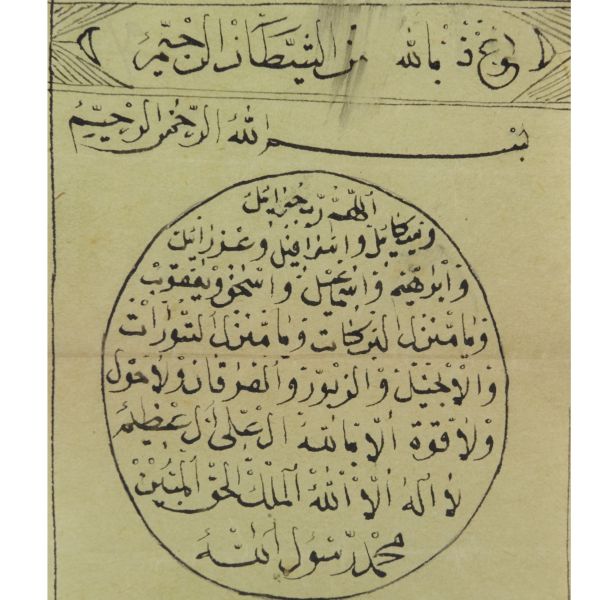 اعوذ بالله من الشيطان الرجيم
بسم الله الرحمن الرحيم
اللهم رب جبرائيل
وميكائيل واسرافيل وعزرائيل
وابراهيم واسماعيل واسحق ويعقوب
ويا منزل البركات ويا منزل التورات
والانجيل والزبور والفرقان ولا حول
ولا قوة الا بالله العلى العظيم
لا اله الا الله الملك الحق المبين
محمد رسول الله